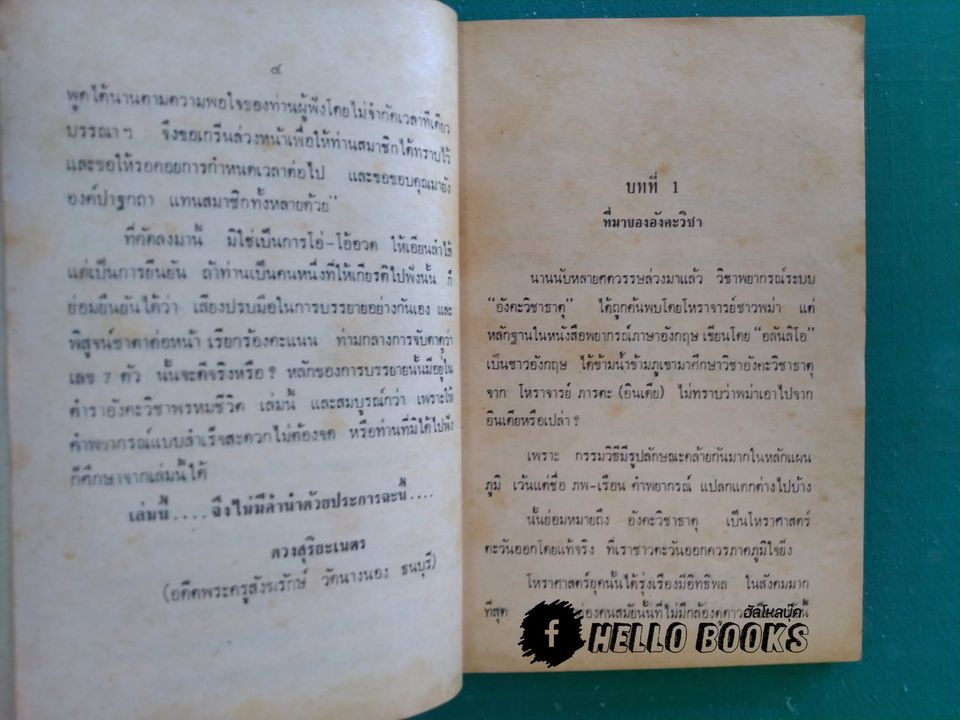 ๔
พูดได้นานตามความพอใจของท่านผู้ฟังโดยไม่จำกัดเวลาทีเดียว
บรรณาฯ จึงขอเกรีนล่วงหน้าเพื่อให้ท่านสมาชิกได้ทราบไว้
และขอให้รอคอยการกำหนดเวลาต่อไป และขอขอบคุณมายัง
องค์ปาฐกถา แทนสมาชิกทั้งหลายด้วย”
ที่คัดลงมานี้ มิใช่เป็นการโอ่-โอ้อวด ให้เอียนลำไส้
แต่เป็นการยืนยัน ถ้าท่านเป็นคนหนึ่งที่ให้เกียรติไปฟังนั้น ก็
ย่อมยืนยันได้ว่า เสียงปรบมือในการบรรยายอย่างกันเอง และ
พิสูจน์ชาตาต่อหน้า เรียกร้องคะแนน ท่ามกลางการจับตาดูว่า
เลข 7 ตัว นั้นจะดีจริงหรือ? หลักของการบรรยายนั้นมีอยู่ใน
ตำราอังคะวิชาพรหมชีวิต เล่มนี้ และสมบูรณ์กว่า เพราะให้
คำพยากรณ์แบบสำเร็จสะดวกไม่ต้องจด หรือท่านที่มิได้ไปฟัง
ก็ศึกษาจากเล่มนี้ได้
เล่มนี้....จึงไม่มีคำนำด้วยประการฉะนี้....
ดวงสุริยะเนตร
(อดีตพระครูสังฆรักษ์ วัดนางนอง ธนบุรี)
บทที่ 1
ที่มาของอังคะวิชา
นานนับหลายศตวรรษล่วงมาแล้ว วิชาพยากรณ์ระบบ
“อังคะวิชาธาตุ” ได้ถูกค้นพบโดยโหราจารย์ชาวพม่า แต่
หลักฐานในหนังสือพยากรณ์ภาษาอังกฤษ เขียนโดย “อลันลิโอ”
เป็นชาวอังกฤษ ได้ข้ามน้ำข้ามภูเขามาศึกษาวิชาอังคะวิชาธาตุ
จาก โหราจารย์ ภารตะ (อินเดีย) ไม่ทราบว่าพม่าเอาไปจาก
อินเดียหรือเปล่า?
เพราะ กรรมวิธีมีรูปลักษณะคล้ายกันมากในหลักแผน
ภูมิ เว้นแต่ชื่อ ภพ-เรือน คำพยากรณ์ แปลกแตกต่างไปบ้าง
นั้นย่อมหมายถึง อังคะวิชาธาตุ เป็นโหราศาสตร์
ตะวันออกโดยแท้จริง ที่เราชาวตะวันออกควรภาคภูมิใจยิ่ง
โหราศาสตร์ยุคนั้นได้รุ่งเรืองมีอิทธิพล ในสังคมมาก
ที่สุด ของคนสมัยนั้นที่ไม่มีกล้องดูดาว
ฮัลโหลบุ๊ค
f HELLO BOOKS